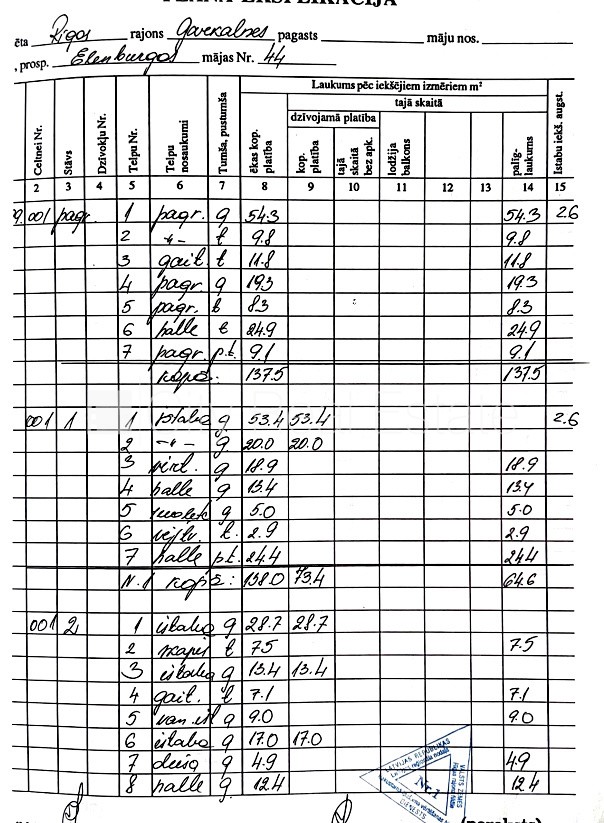 PLĀNA EKSPLIKĀCIJA
ēta Rīgas rajons Garkalnes pagasts māju nos.
, prosp. Elenburgas mājas Nr. 44
Celtnei Nr. Stāvs Dzīvokļu Nr. Telpu Nr. Telpu nosaukumi Tumša, pustumša Laukums pēc iekšējiem izmēriem m² Istabu iekš. augst.
ēkas kop. platība tajā skaitā palīg- laukums
dzīvojamā platība lodžija balkons
kop. platība tajā skaitā bez apk.
2 3 4 5 6 7 8 9 10 11 12 13 14 15
001 pagr. 1 pagr. g 54.3 54.3 2.6
2 -"- t 9.8 9.8
3 gait. t 11.8 11.8
4 pagr. g 19.3 19.3
5 pagr. t 8.3 8.3
6 halle t 24.9 24.9
7 pagr. p.t. 9.1 9.1
kopā: 137.5 137.5
001 1 1 istaba g 53.4 53.4 2.6
2 -"- g 20.0 20.0
3 virt. g 18.9 18.9
4 halle g 13.4 13.4
5 g 5.0 5.0
6 vējtv. t. 2.9 2.9
7 halle pt. 24.4 24.4
N.1 kopā: 138.0 73.4 64.6
001 2 1 istaba g 28.7 28.7
2 skapis t 7.5 7.5
3 istaba g 13.4 13.4
4 gait. t 7.1 7.1
5 van.ist g 9.0 9.0
6 istaba g 17.0 17.0
7 duša g 4.9 4.9
8 halle g. 12.4 12.4
LATVIJAS REPUBLIKAS
VALSTS ZEMES
Nr. 1
DIENESTS
(paraksts)